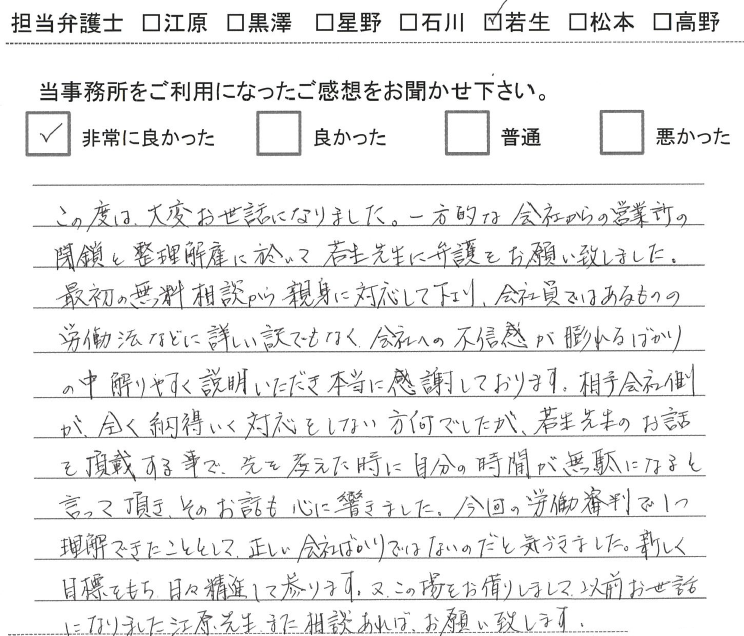 担当弁護士 □江原 □黒澤 □星野 □石川 ☑若生 □松本 □高野
当事務所をご利用になったご感想をお聞かせ下さい。
☑ 非常に良かった □ 良かった □ 普通 □ 悪かった
この度は、大変お世話になりました。一方的な会社からの営業所の
閉鎖と整理解雇に於いて若生先生に弁護をお願い致しました。
最初の無料相談から親身に対応して下さり、会社員ではあるものの
労働法などに詳しい訳でもなく、会社への不信感が膨れるばかり
の中解りやすく説明いただき本当に感謝しております。相手会社側
が、全く納得いく対応をしない方向でしたが、若生先生のお話
を頂載する事で、先を考えた時に自分の時間が無駄になると
言って頂き、そのお話も心に響きました。今回の労働審判で1つ
理解できたこととして、正しい会社ばかりではないのだと気づきました。新しく
目標をもち、日々精進して参ります。又、この場をお借りしまして、以前お世話
になりました江原先生、また相談あれば、お願い致します。